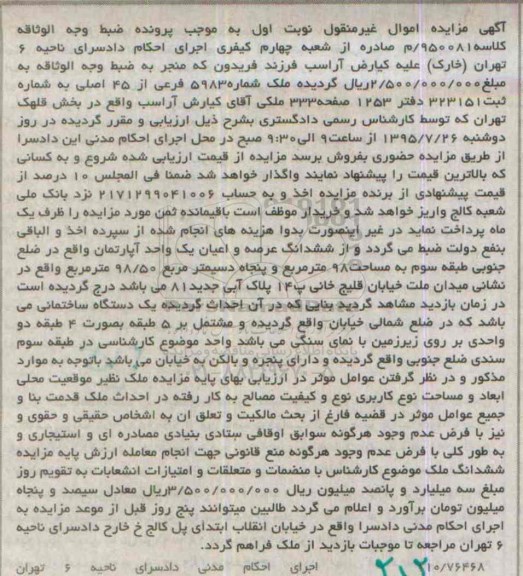 آگهی مزایده اموال غیرمنقول نوبت اول به موجب پرونده ضبط وجه الوثاقه
کلاسه۹۵۰۰۸۱/م صادره از شعبه چهارم کیفری اجرای احکام دادسرای ناحیه ۶
تهران (خارک) علیه کیارض آراسب فرزند فریدون که منجر به ضبط وجه الوثاقه به
مبلغ۲/۵۰۰/۰۰۰/۰۰۰ریال گردیده ملک شماره۵۹۸۳ فرعی از ۴۵ اصلی به شماره
ثبت۳۲۳۱۵۱ دفتر ۱۲۵۳ صفحه۳۳۳ ملکی آقای کیارش آراسب واقع در بخش قلهک
تهران که توسط کارشناس رسمی دادگستری بشرح ذیل ارزیابی و مقرر گردیده در روز
دوشنبه ۱۳۹۵/۷/۲۶ از ساعت۹ الی۹:۳۰ صبح در محل اجرای احکام مدنی این دادسرا
از طریق مزایده حضوری بفروش برسد مزایده از قیمت ارزیابی شده شروع و به کسانی
که بالاترین قیمت را پیشنهاد نمایند واگذار خواهد شد ضمنا فی المجلس ۱۰ درصد از
قیمت پیشنهادی از برنده مزایده اخذ و به حساب ۲۱۷۱۲۹۹۰۴۱۰۰۶ نزد بانک ملی
شعبه کالج واریز خواهد شد و خریدار موظف است باقیمانده ثمن مورد مزایده را ظرف یک
ماه پرداخت نماید در غیر اینصورت بدوا هزینه های انجام شده از سپرده اخذ و الباقی
بنفع دولت ضبط می گردد و از ششدانگ عرصه و اعیان یک واحد آپارتمان واقع در ضلع
جنوبی طبقه سوم به مساحت۹۸ مترمربع و پنجاه دسیمتر مربع ۹۸/۵۰ مترمربع واقع در
نشانی میدان ملت خیابان قلیچ خانی پ۱۴ پلاک آبی جدید۸۱ می باشد درج گردیده است
در زمان بازدید مشاهد گردید بنایی که در آن احداث گردیده یک دستگاه ساختمانی می
باشد که در ضلع شمالی خیابان واقع گردیده و مشتمل بر ۵ طبقه بصورت ۴ طبقه دو
واحدی بر روی زیرزمین با نمای سنگی می باشد واحد موضوع کارشناسی در طبقه سوم
سندی ضلع جنوبی واقع گردیده و دارای پنجره و بالکن به خیابان می باشد باتوجه به موارد
مذکور و در نظر گرفتن عوامل موثر در ارزیابی بهای پایه مزایده ملک نظیر موقعیت محلی
ابعاد و مساحت نوع کاربری نوع و کیفیت مصالح به کار رفته در احداث ملک قدمت بنا و
جمیع عوامل موثر در قضیه فارغ از بحث مالکیت و تعلق ان به اشخاص حقیقی و حقوی و
نیز با فرض عدم وجود هرگونه سوابق اوقافی ستادی بنیادی مصادره ای و استیجاری و
به طور کلی با فرض عدم وجود هرگونه منع قانونی جهت انجام معامله ارزش پایه مزایده
ششدانگ ملک موضوع کارشناس با منضمات و متعلقات و امتیازات انشعابات به تقویم روز
مبلغ سه میلیارد و پانصد میلیون ریال ۳/۵۰۰/۰۰۰/۰۰۰ریال معادل سیصد و پنجاه
میلیون تومان برآورد و اعلام می گردد طالبین میتوانند پنج روز قبل از موعد مزایده به
اجرای احکام مدنی دادسرا واقع در خیابان انقلاب ابتدای پل کالج خ خارج دادسرای ناحیه
۶ تهران مراجعه تا موجبات بازدید از ملک فراهم گردد.
۱۰/۷۶۴۶۸ ۲۱۲ اجرای احکام مدنی دادسرای ناحیه ۶ تهران